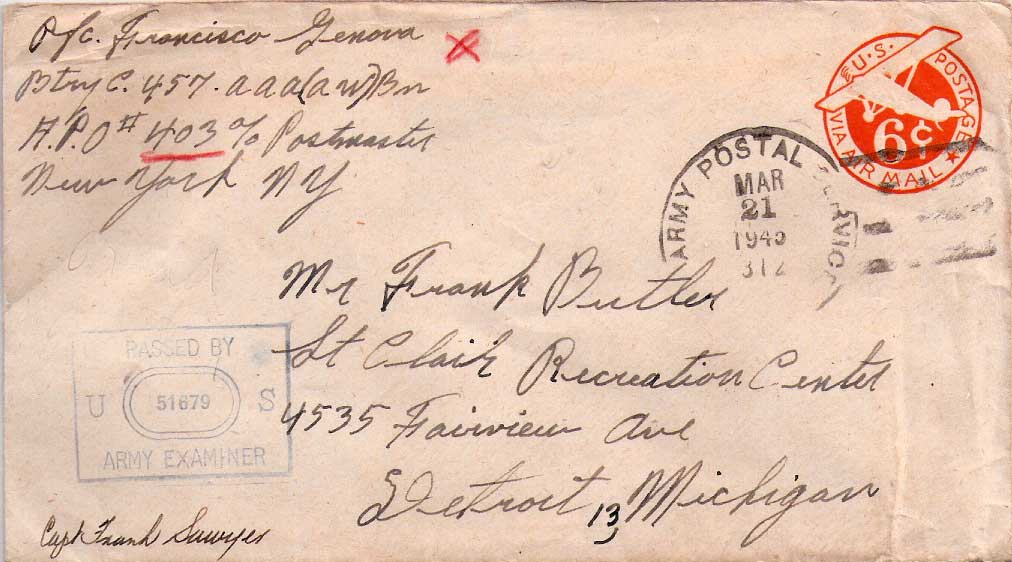 Pfc. Francisco Genova X
Btry C. 457. a a a (a w) Bn
A.P.O # 403 c/o Postmaster
New York NY
U.S. POSTAGE
VIA AIR MAIL
6¢
ARMY POSTAL SERVICE
MAR
21
1945
312
Mr Frank Butler
St Clair Recreation Center
4535 Fairview Ave
Detroit 13, Michigan
PASSED BY
U 51679 S
ARMY EXAMINER
Capt Frank Sawyer